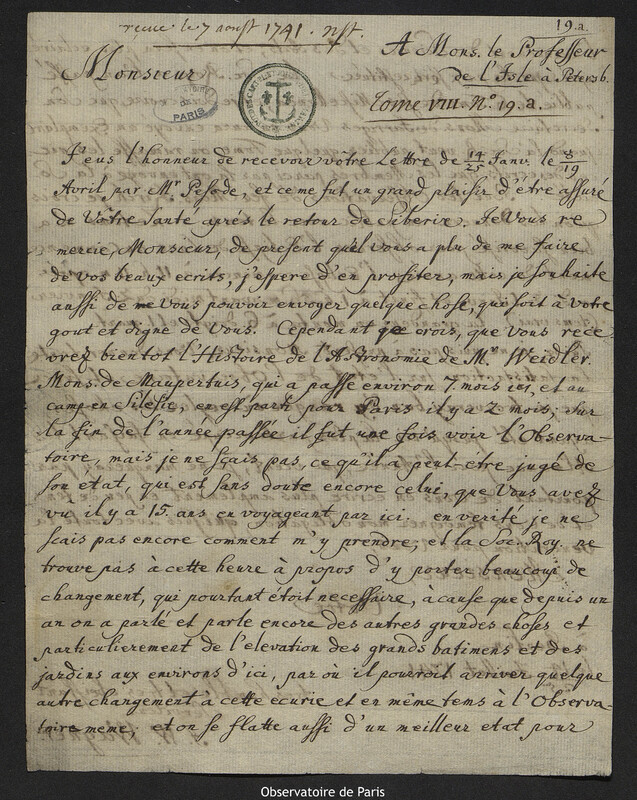 recue le 7 aoust 1741. nst.
19.a.
A Mons. le Professeur
de l'Isle à Petersb.
Tome VIII. N.º 19. a.
Monsieur
PARIS
J'eus l'honneur de recevoir vôtre Lettre de 14/25 Janv. le 8/19
Avril par Mr. Pesode, et ce me fut un grand plaisir d'être assuré
de Vôtre Santé aprés le retour de Siberie. Je Vous re
mercie, Monsieur, de present qu'il vous a plu de me faire
de vos beaux ecrits, j'espere d'en profiter, mais je souhaite
aussi de Vous pouvoir envoyer quelque chose, qui soit à Vôtre
gout et digne de Vous. Cependant je crois, que Vous rece
vrez bientot l'Histoire de l'Astronomie de Mr. Weidler.
Mons. de Maupertuis, qui a passé environ 7 mois ici, et au
camp en Silesie, en est parti pour Paris il y a 2 mois; sur
la fin de l'année passée il fut une fois voir l'Observa-
toire, mais je ne sçais pas, ce qu'il a peut-être jugé de
son etat, qui est sans doute encore celui, que Vous avez
vû il y a 15 ans en voyageant par ici. en verité je ne
scais pas encore comment m'y prendre, et la Soc. Roy. ne
trouve pas à cette heure à propos d'y porter beaucoup de
changement, qui pourtant étoit necessaire, à cause que depuis un
an on a parlé et parle encore des autres grandes choses et
particulierement de l'elevation des grands batimens et des
jardins aux environs d'ici, par où il pourroit arriver quelque
autre changement à cette ecurie et en même tems à l'Observa-
toire meme, et on se flatte aussi d'un meilleur etat pour
Observatoire de Paris